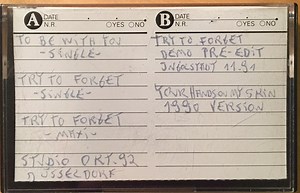 A DATE
N.R. ○YES ○NO
TO BE WITH YOU
-SINGLE-
TRY TO FORGET
-SINGLE-
TRY TO FORGET
-MAXI-
STUDIO OKT. 92
DÜSSELDORF
B DATE
N.R. ○YES ○NO
TRY TO FORGET
DEMO PRE-EDIT
INGOLSTADT 11.91
YOUR HANDS ON MY SKIN
1990 VERSION